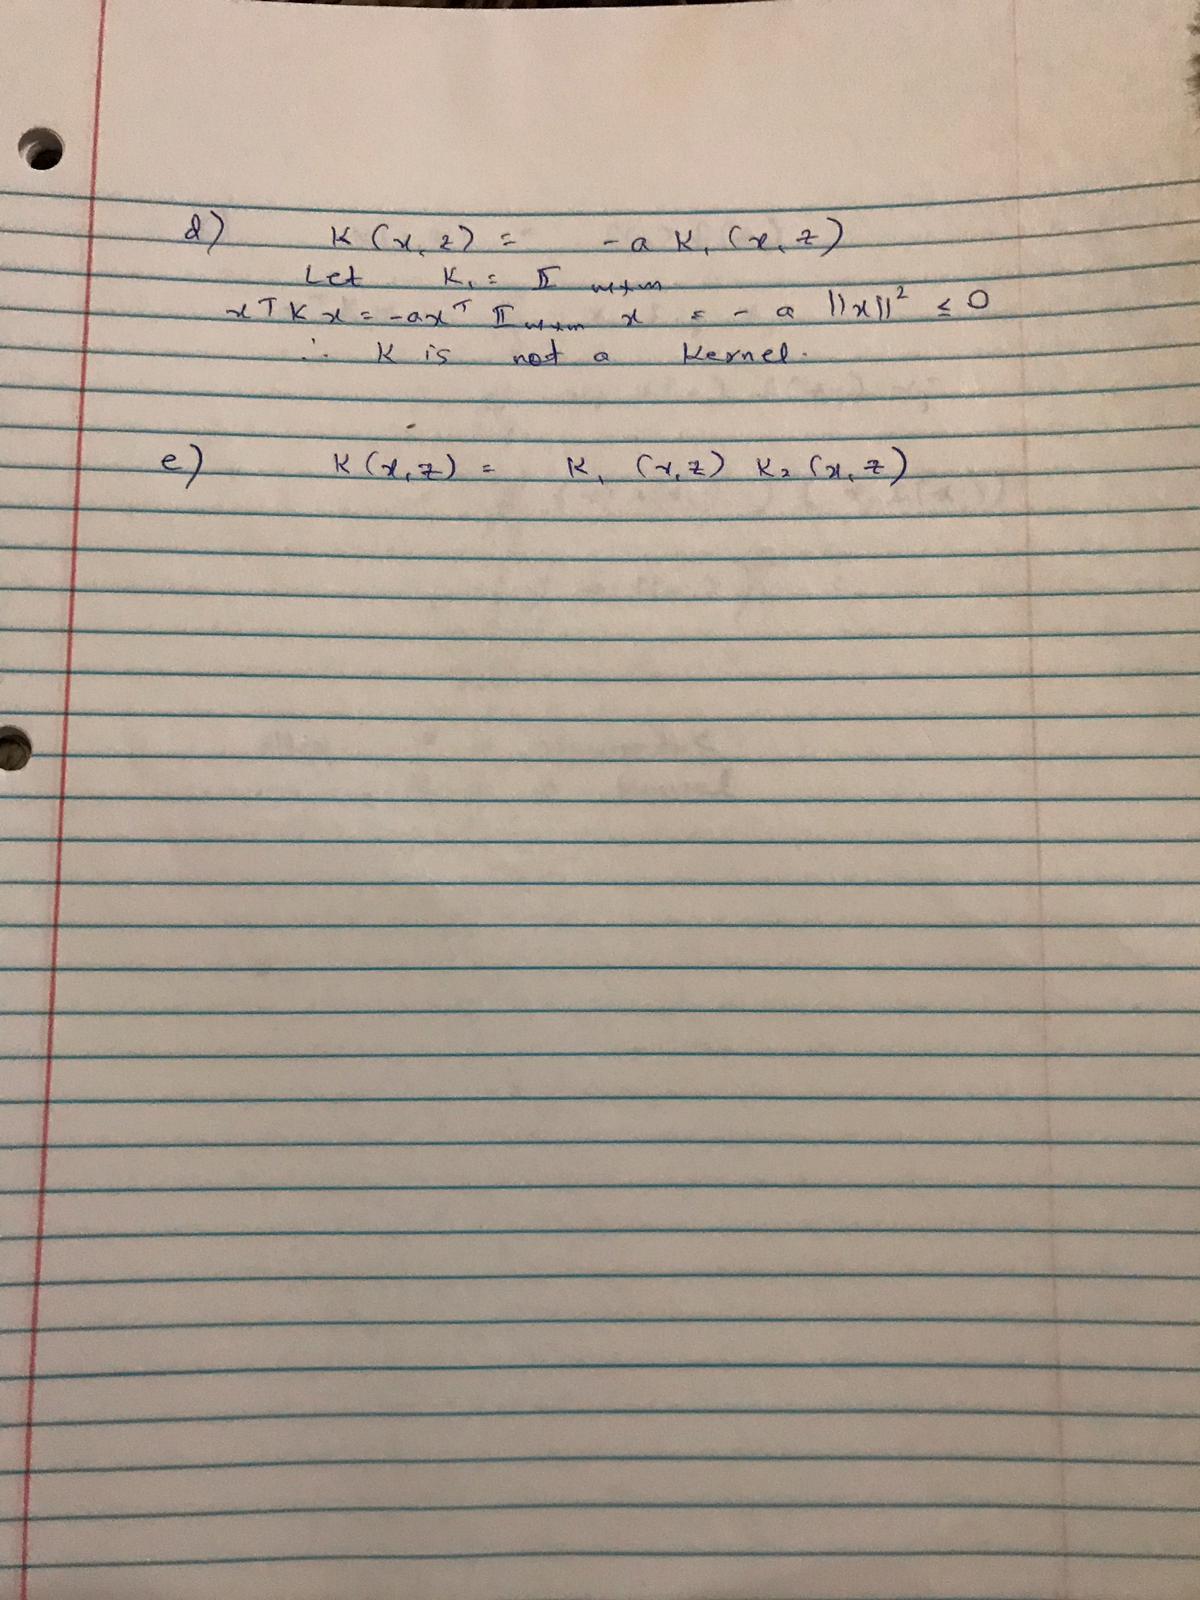 d) K(x, z) = -a K₁(x, z)
Let K₁ = I m×m
xᵀKx = -axᵀ I m×m x = -a ||x||² ≤ 0
∴ K is not a kernel.
e) K(x, z) = K₁(x, z) K₂(x, z)